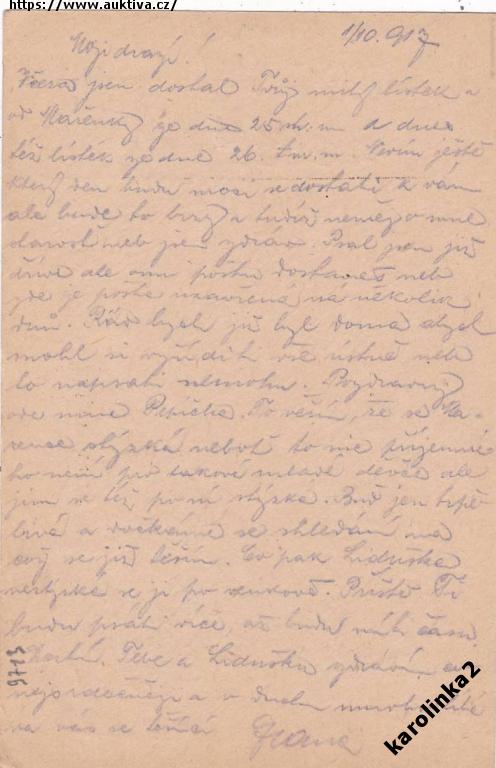 https://www.auktiva.cz/
1/10. 917
Moji drazí!
Včera jsem dostal Tvůj milý lístek a
od Mařenky ze dne 25.th. m a dnes
též lístek ze dne 26. t.m. Nevím ještě
který den budu moci se dostati k vám
ale bude to brzy a tudíž neměj o mne
starosti neb jsem zdráv. Psal jsem již
dříve ale ani poštu dostaneš neb
zde je pošta uzavřená na několik
dnů. Rád bych již byl doma abych
mohl si vyřídit vše ústně neb
to napsati nemohu. Pozdravuj
ode mne Pepíčka. To věřím, že se Ma-
řence stýská neboť to nic příjemné
ho není pro takové mladé děvče ale
jim se též po ní stýská. Buď jen trpě
livá a dočkáme se shledání na
což se již těším. Co pak Liduška
nestýská se jí po Příště Ti
budu psáti více, až budu míti času.
Tebe a Lidušku zdravím co
nejsrdečněji a v duchu
va vás se těšící
9713
karolinka2